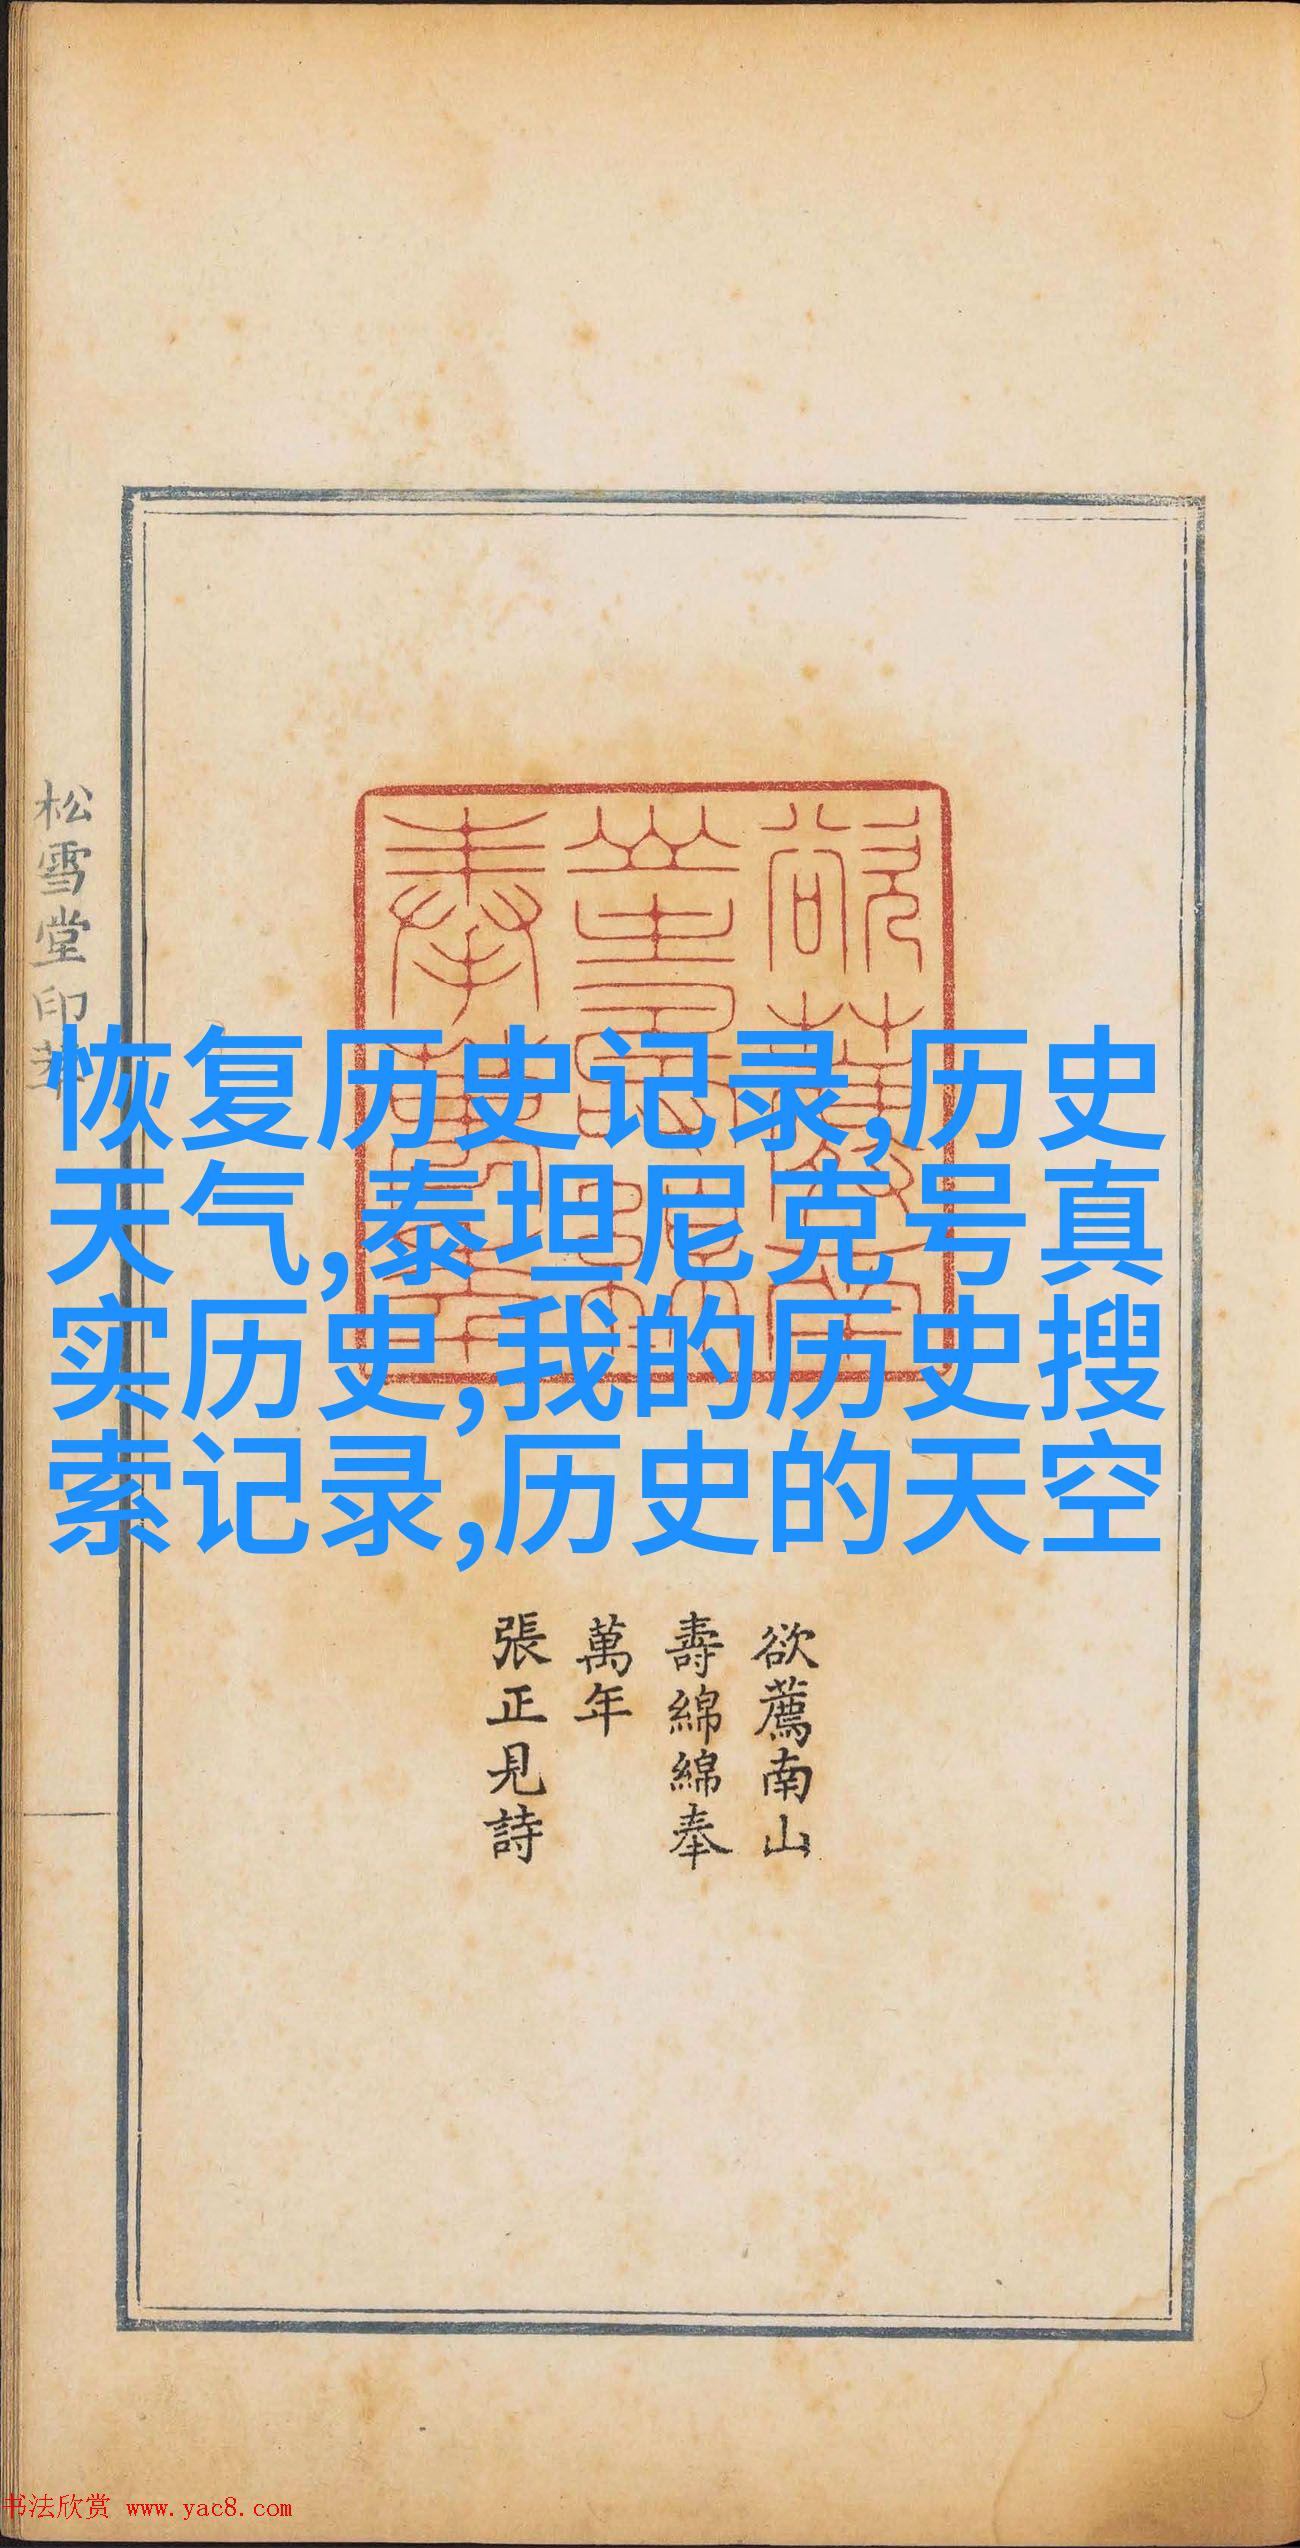 恢复历史记录,历史
天气,泰坦尼克号真
实历史,我的历史搜
索记录,历史的天空
欲薦南山
壽綿綿奉
萬年
張正見詩
松雪堂印
书法欣赏 www.yac8.com